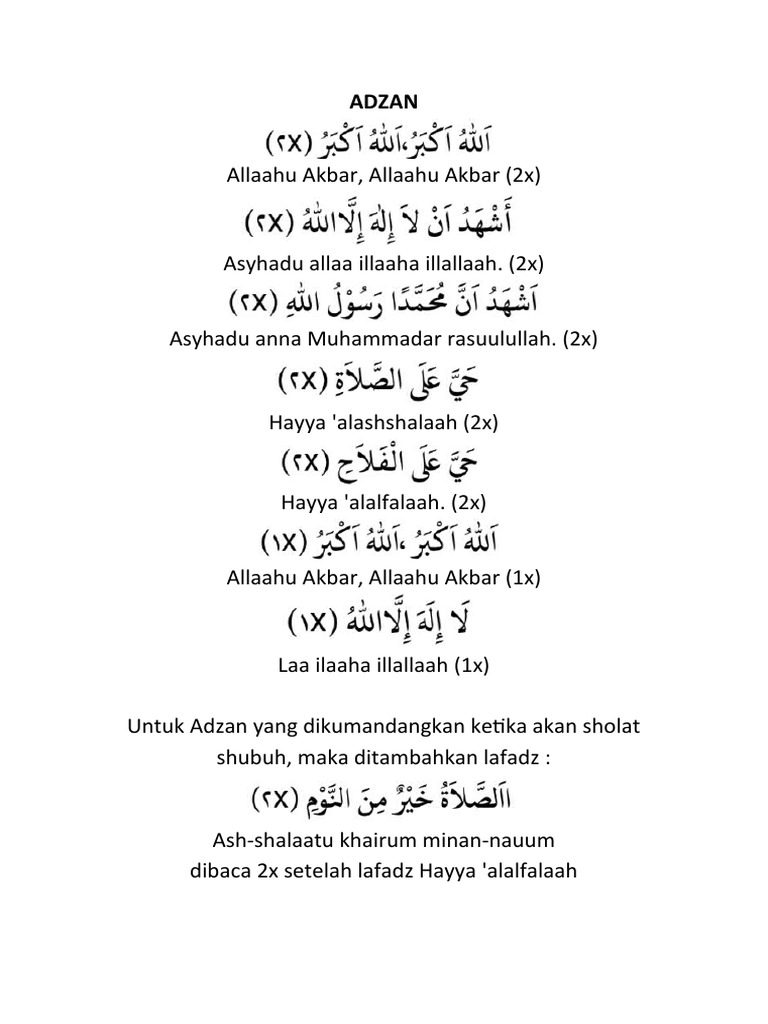 ADZAN
اَللهُ اَكْبَرُ،اَللهُ اَكْبَرُ (٢X)
Allaahu Akbar, Allaahu Akbar (2x)
أَشْهَدُ اَنْ لاَ إِلٰهَ إِلَّااللهُ (٢X)
Asyhadu allaa illaaha illallaah. (2x)
اَشْهَدُ اَنَّ مُحَمَّدًا رَسُوْلُ اللهِ (٢X)
Asyhadu anna Muhammadar rasuulullah. (2x)
حَيَّ عَلَى الصَّلاَةِ (٢X)
Hayya 'alashshalaah (2x)
حَيَّ عَلَى الْفَلاَحِ (٢X)
Hayya 'alalfalaah. (2x)
اَللهُ اَكْبَرُ ،اَللهُ اَكْبَرُ (١X)
Allaahu Akbar, Allaahu Akbar (1x)
لَا إِلَهَ إِلَّااللهُ (١X)
Laa ilaaha illallaah (1x)
Untuk Adzan yang dikumandangkan ketika akan sholat
shubuh, maka ditambahkan lafadz :
ااَلصَّلاَةُ خَيْرٌ مِنَ النَّوْمِ (٢X)
Ash-shalaatu khairum minan-nauum
dibaca 2x setelah lafadz Hayya 'alalfalaah